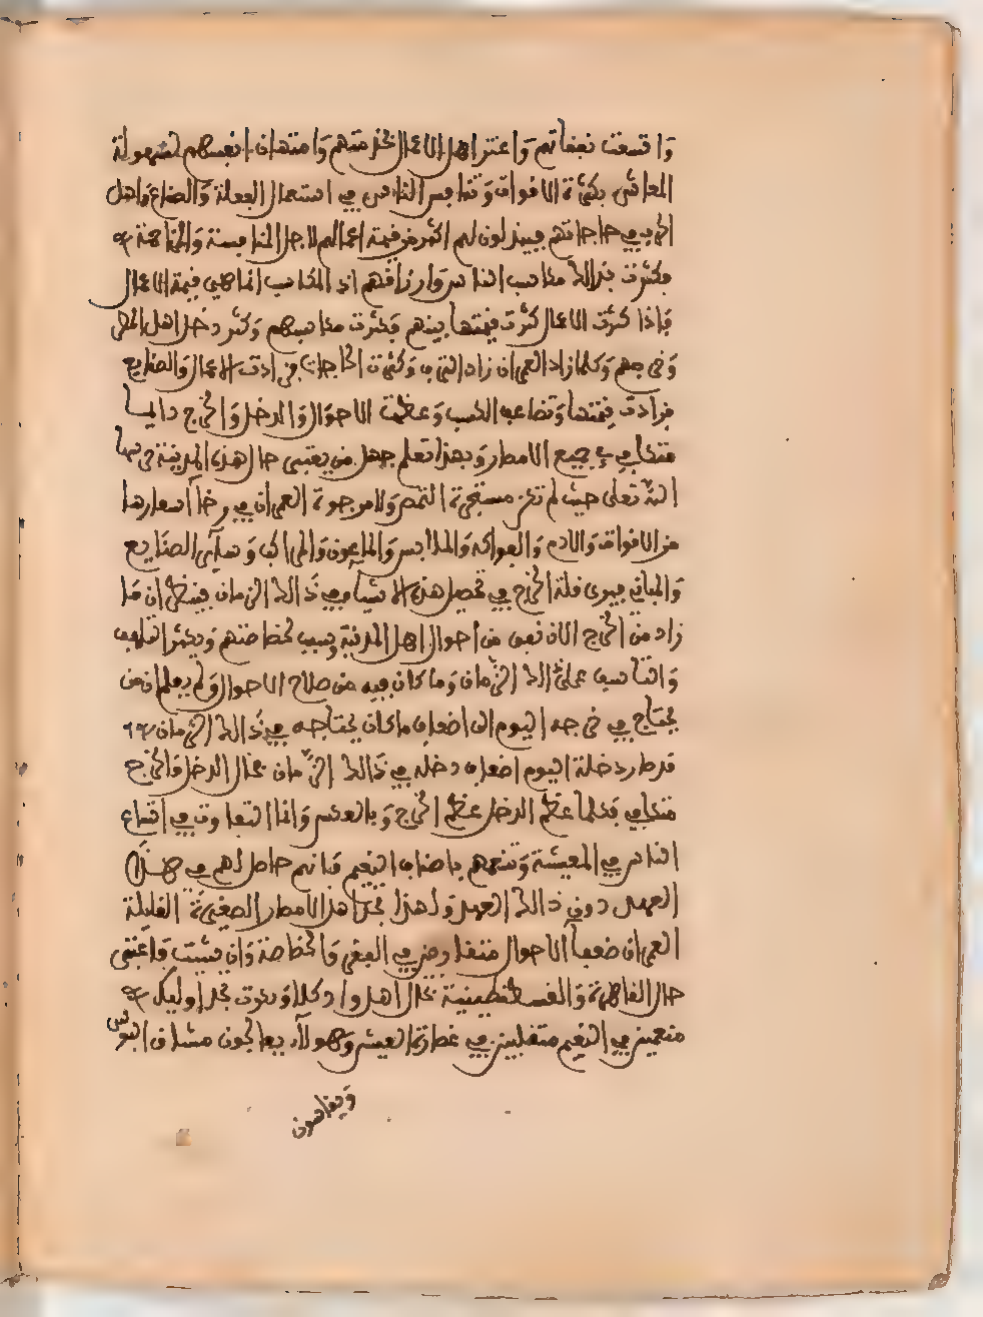 وَاتسعت نفقاتهم وَاعتز اهل الاعمال بخدمتهم وَامتهان انفسهم لسهولة
المعاش بكثرة الاقوات وَتنافس الناس في استعمال الفعلة وَالصناع واهل
الحرف في حاجاتهم فيبذلون لهم اكثر من قيمة اعمالهم لاجل المنافسة وَالمزاحمة
فكثرت بذالك مكاسب الناس وارزاقهم اذ المكاسب انما هي قيمة الاعمال
فَاذا كثرت الاعمال كثرت قيمتها بينهم فكثرت مكاسبهم وَكثر دخل اهل المصر
وَخرجهم وَكلما زاد العمران زاد الترف وَكثرت الحاجات فزادت الاعمال وَالصنايع
فزادت قيمتها وَتضاعف الكسب وَعظمت الاحوال وَالدخل وَالخرج دايما
متكافي في جميع الامصار وَبهذا تعلم جهل من يعتبر حال هذه المدينة حرسها
الله تعلى حيث لم تكن مستبحرة التمصر ولا موجودة العمران في رخا أسعارها
من الاقوات وَالادم وَالفواكه وَالملابس وَالماعون وَالمراكب وَساير الصنايع
وَالمباني فيرى قلة الخرج في تحصيل هذه الاشياء في ذالك الزمان فيظن ان ما
زاد من الخرج الان نقص من أحوال اهل المدينة وسبب لخصاصتهم ويكثر التلهف
وَالتاسف على ذالك الزمان وَما كان فيه من صلاح الاحوال ولم يعلم ان من
يحتاج في خرجه اليوم الى اضعاف ما كان يحتاجه في ذالك الزمان
قد صار دخله اليوم اضعاف دخله في ذالك الزمان فحال الدخل وَالخرج
متكافي فكلما عظم الدخل عظم الخرج وَبالعكس وَانما التفاوت في اتساع
الناس في المعيشة وَتنعمهم باصناف النعيم فانه حاصل لهم في هذا
العهد دون ذالك العهد ولهذا تجد اهل الامصار الصغيرة القليلة
العمران ضعفا الاحوال متقاربين في الفقر وَالخصاصة وَان شئت فاعتبر
حال القاهرة وَالقسطنطينية بحال اهل وادكلا وَتكرت تجد اوليك
منعمين في النعيم متقلبين في غضارة العيش وَهولاء يعالجون مشاق البوس
وَيقاسون